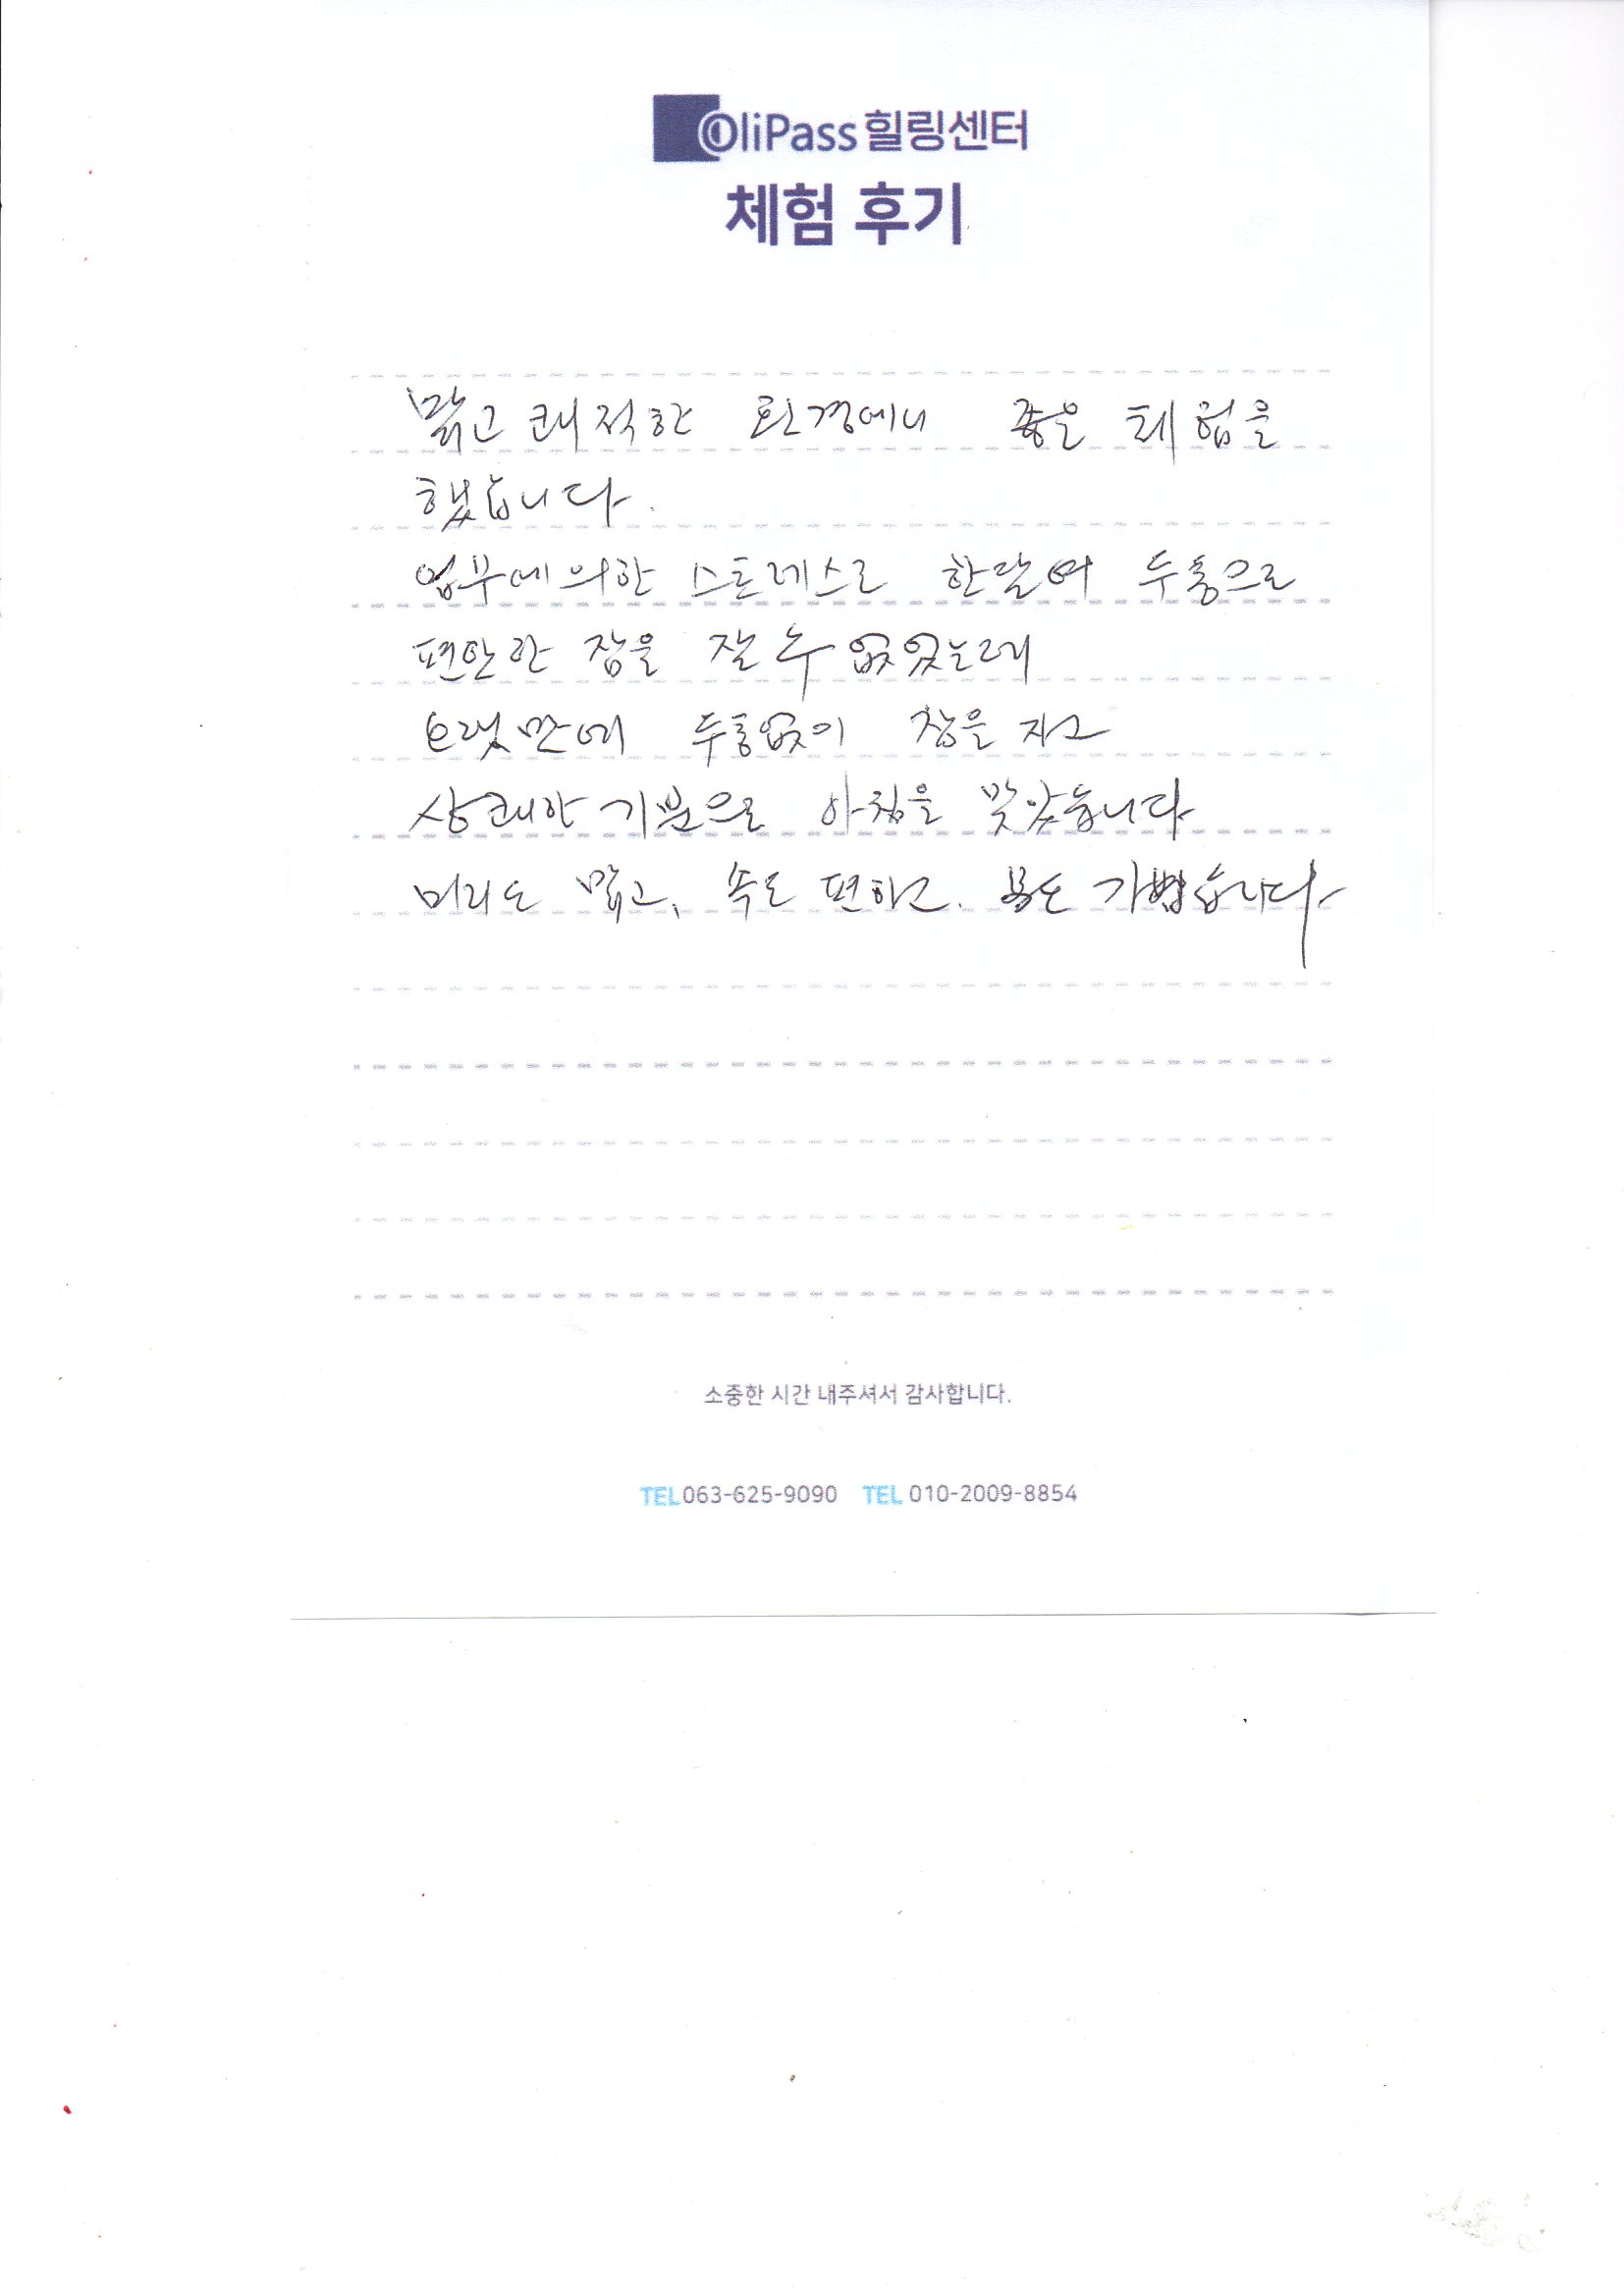 OliPass 힐링센터
체험 후기
맑고 쾌적한 환경에서 좋은 체험을
했습니다.
업무에 의한 스트레스로 한달여 두통으로
편안한 잠을 잘 수 없었는데
오랫만에 두통없이 잠을 자고
상쾌한 기분으로 아침을 맞았습니다
머리도 맑고, 속도 편하고. 몸도 가볍습니다
소중한 시간 내주셔서 감사합니다.
TEL 063-625-9090 TEL 010-2009-8854